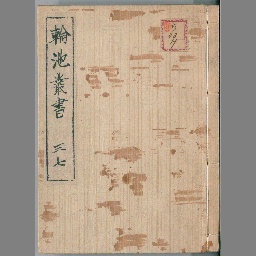 輪池叢書 三七